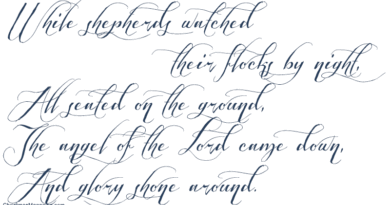 While shepherds watched
their flocks by night,
All seated on the ground,
The angel of the Lord came down,
And glory shone around.